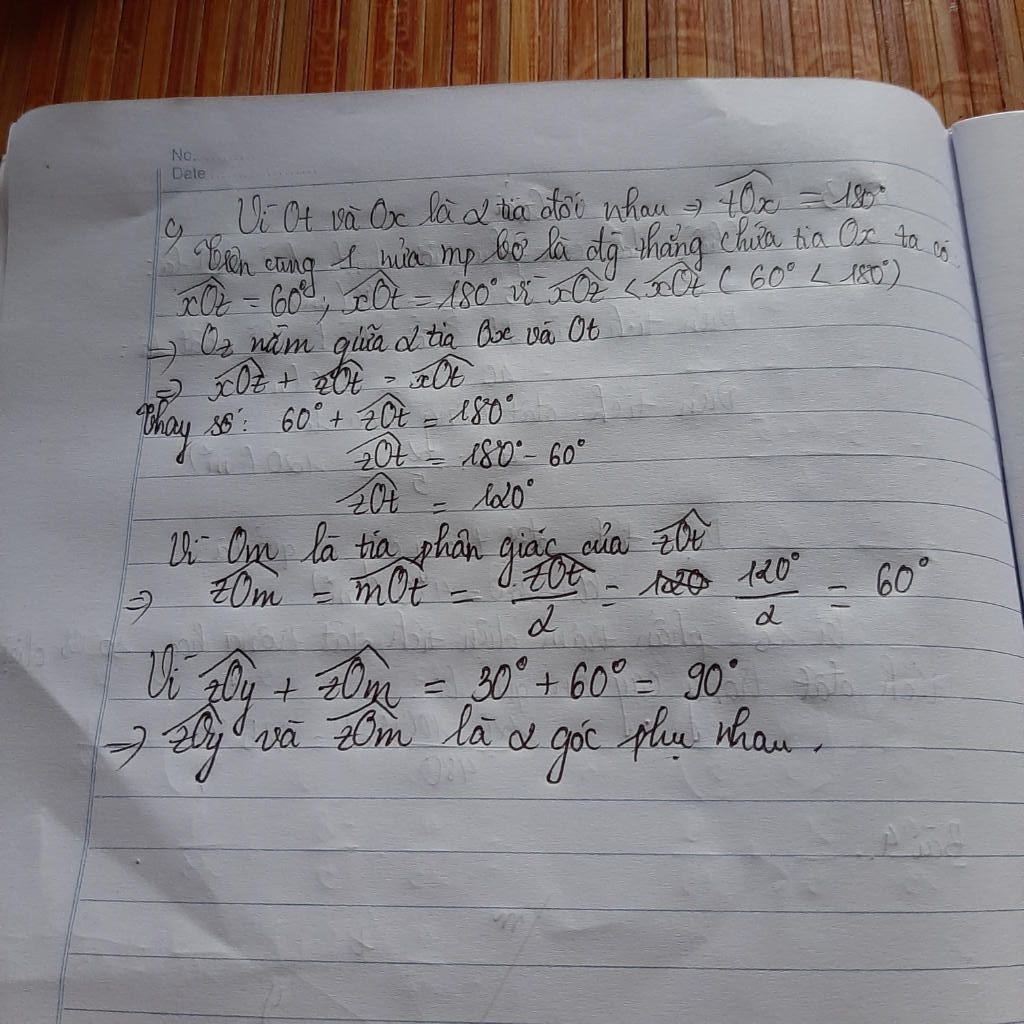 No.
Date
c, Vì Ot và Ox là 2 tia đối nhau ⇒ tOx = 180°
Trên cùng 1 nửa mp bờ là đg thẳng chứa tia Ox ta có
xOz = 60°, xOt = 180° vì xOz < xOt (60° < 180°)
⇒ Oz nằm giữa 2 tia Ox và Ot
⇒ xOz + zOt = xOt
Thay số: 60° + zOt = 180°
zOt = 180° - 60°
zOt = 120°
Vì Om là tia phân giác của zOt
⇒ zOm = mOt = zOt/2 = 120 120°/2 = 60°
Vì zOy + zOm = 30° + 60° = 90°
⇒ zOy và zOm là 2 góc phụ nhau.